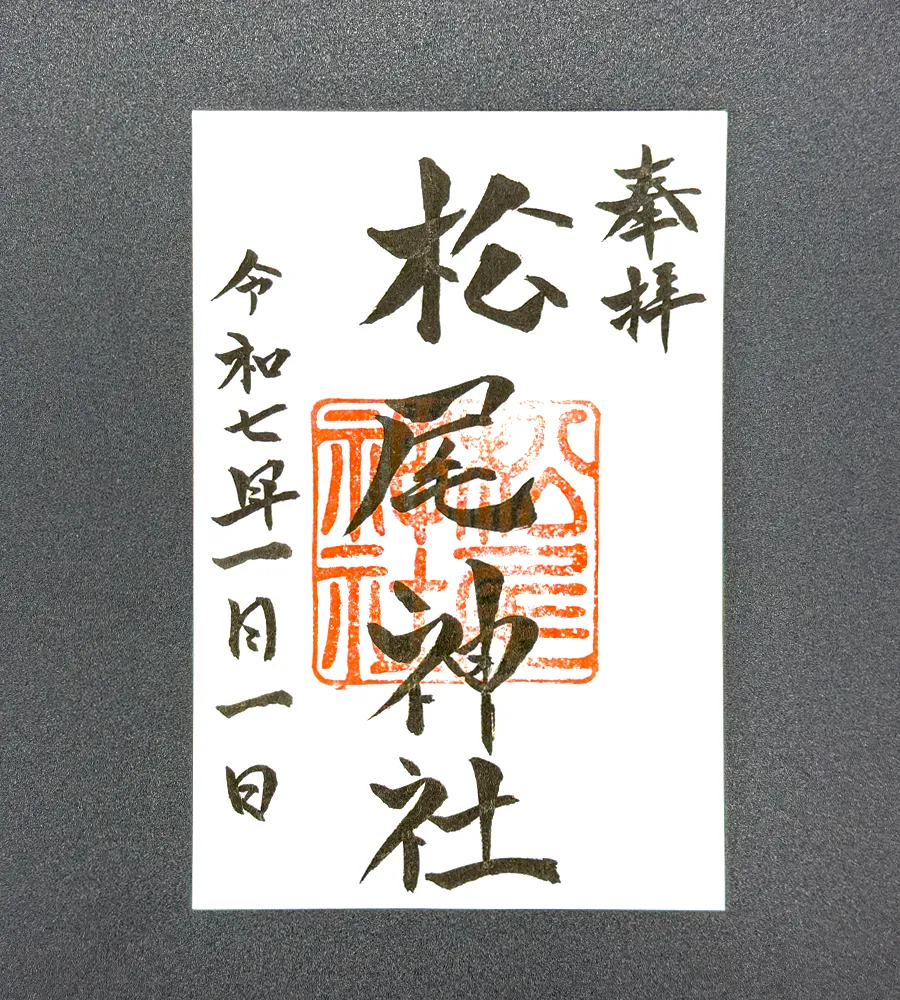 奉拝
松尾神社
松尾神社
令和七年一月一日